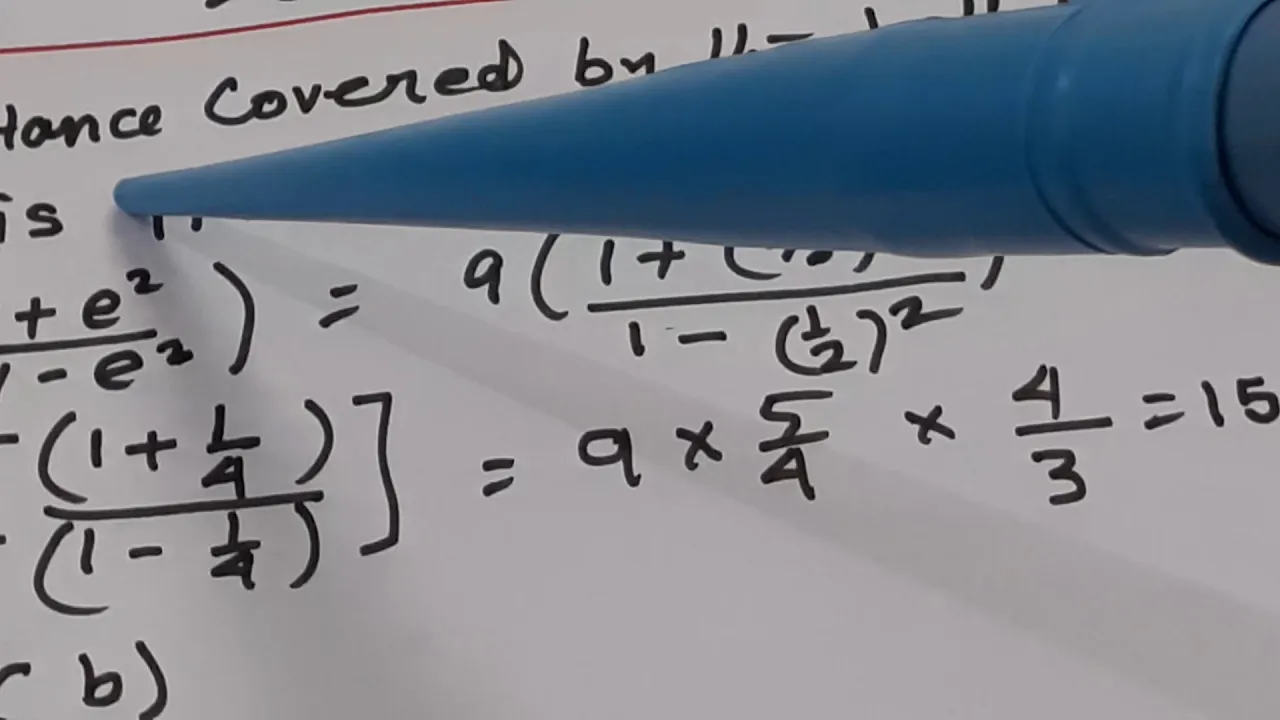 tance Covered by
is
+ e² / 1 - e² ) = 9 ( 1 + ( / 1 - (1/2)²
(1 + 1/4) / (1 - 1/4) ] = 9 × 5/4 × 4/3 = 15
( b)